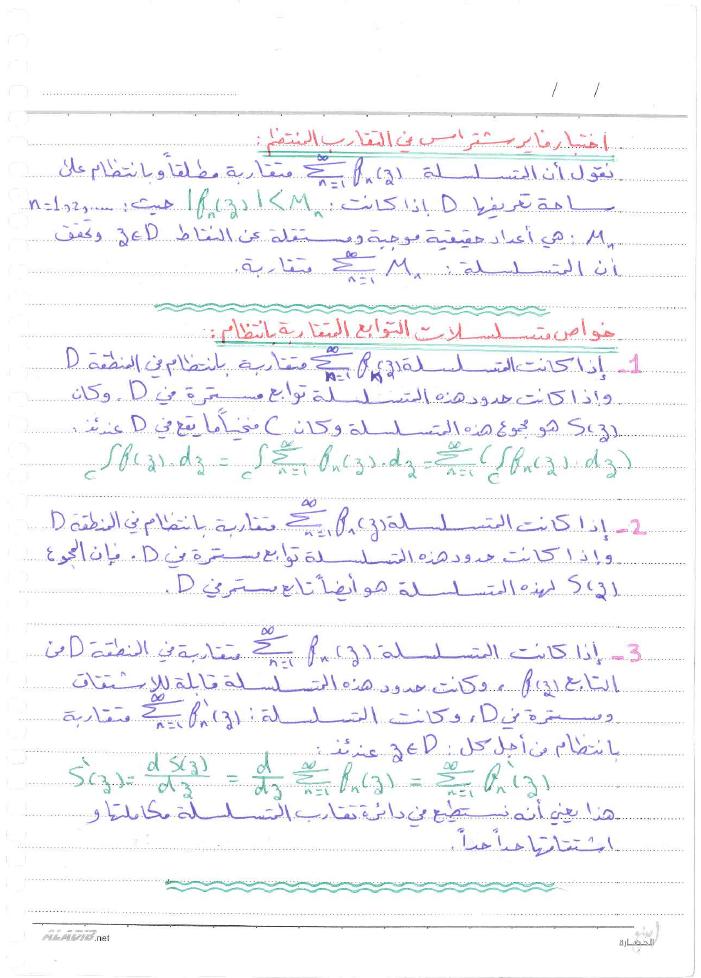 / /
اختبار فايرشتراس في التقارب المنتظم:
نقول أن المتسلسلة $\sum_{n=1}^{\infty} f_n(z)$ متقاربة مطلقاً وبانتظام على
ساحة تعريفها D إذا كانت: $|f_n(z)| < M_n$ حيث: n=1,2,....
$M_n$: هي أعداد حقيقية موجبة ومستقلة عن النقاط $z \in D$ وتحقق
أن المتسلسلة: $\sum_{n=1}^{\infty} M_n$ متقاربة.
خواص متسلسلات التوابع المتقاربة بانتظام:
1- إذا كانت المتسلسلة $\sum_{n=1}^{\infty} f_n(z)$ متقاربة بانتظام في المنطقة D
وإذا كانت حدود هذه المتسلسلة توابع مستمرة في D. وكان
S(z) هو مجموع هذه المتسلسلة وكان C منحنياً ما يقع في D عندئذ:
$\int_C f(z).dz = \int_C \sum_{n=1}^{\infty} f_n(z).dz = \sum_{n=1}^{\infty} (\int_C f_n(z).dz)$
2- إذا كانت المتسلسلة $\sum_{n=1}^{\infty} f_n(z)$ متقاربة بانتظام في المنطقة D
وإذا كانت حدود هذه المتسلسلة توابع مستمرة في D. فإن المجموع
S(z) لهذه المتسلسلة هو أيضاً تابع مستمر في D.
3- إذا كانت المتسلسلة $\sum_{n=1}^{\infty} f_n(z)$ متقاربة في المنطقة D من
التابع f(z)، وكانت حدود هذه المتسلسلة قابلة للاشتقاق
ومستمرة في D، وكانت المتسلسلة: $\sum_{n=1}^{\infty} f_n'(z)$ متقاربة
بانتظام من أجل كل: $z \in D$ عندئذ:
$S'(z) = \frac{d S(z)}{dz} = \frac{d}{dz} \sum_{n=1}^{\infty} f_n(z) = \sum_{n=1}^{\infty} f_n'(z)$
هذا يعني أنه نستطيع في دائرة تقارب المتسلسلة مكاملتها و
اشتقاقها حداً حداً.
ALADIB.net
الحضارة